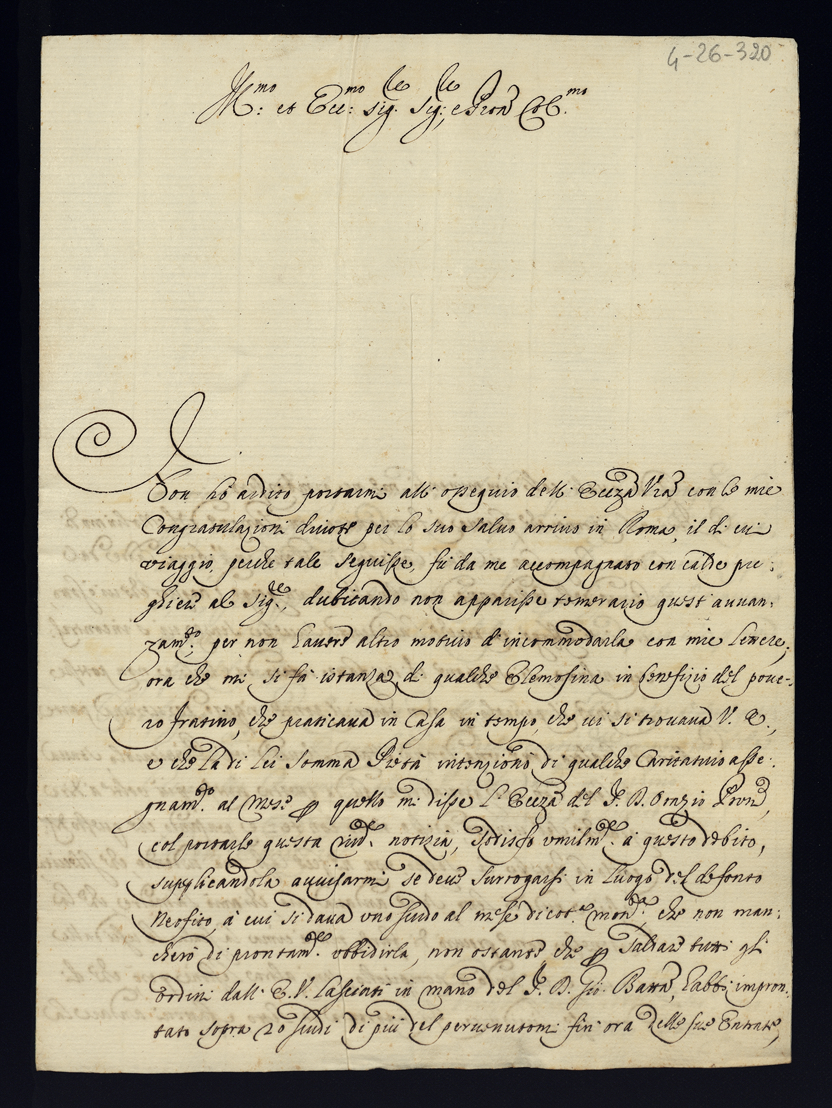 4-26-320
Ill.mo et Ecc.mo Sig.re Sig.re, e Pron Col.mo
Non hò ardito portarmi all' ossequio dell' Eccza Vrã con le mie
Congratulazioni divote per lo suo salvo arrivo in Roma, il di cui
viaggio, perche tale seguisse, fù da me accompagnato con calde pre:
ghiere al Sig.re, dubitando non apparisse temerario quest' avvan:
zam.to, per non havere altro motivo d' incommodarla con mie lettere,
ora che mi si fà istanza di qualche Elemosina in benefizio del pove-
ro fratino, che praticava in Casa in tempo, che vi si trovava V. E.,
e che la di lei Somma Pietà intenziono di qualche Caritativo asse:
gnam.to al mese p quello mi disse l' Eccza del P. D. Orazio Pron,
col portarle questa notizia, sodisfo umilm.te à questo debito,
supplicandola avvisarmi se deve surrogarsi in luogo del defonto
Neofito, à cui si dava uno scudo al mese di cot.a mon.ta che non man:
cherò di prontam.te obbidirla, non ostante che p saldare tutti gli
ordini dall' E.V. lasciati in mano del P. D. Gio: Batta, habbi impron:
tato sopra 20 scudi di più del pervenutomi fin' ora delle sue Entrate,